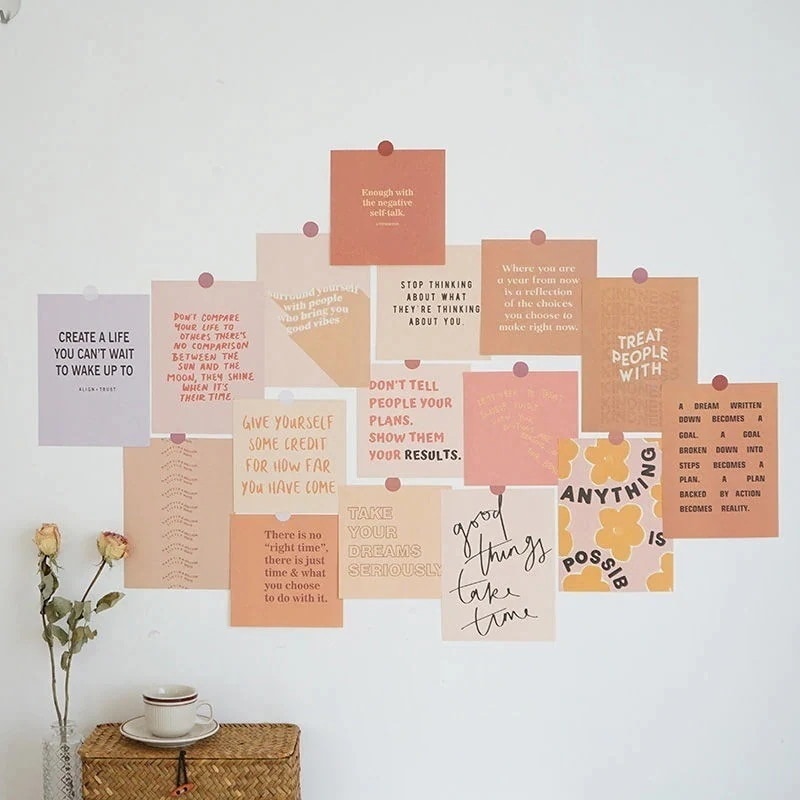 Enough with
the negative
self-talk.
surround yourself
with people
who bring you
good vibes
STOP THINKING
ABOUT WHAT
THEY'RE THINKING
ABOUT YOU.
Where you are
a year from now
is a reflection
of the choices
you choose to
make right now.
CREATE A LIFE
YOU CAN'T WAIT
TO WAKE UP TO
ALIGN + TRUST
DON'T COMPARE
YOUR LIFE TO
OTHERS THERE'S
NO COMPARISON
BETWEEN THE
SUN AND THE
MOON, THEY SHINE
WHEN IT'S
THEIR TIME.
TREAT
PEOPLE
WITH
DON'T TELL
PEOPLE YOUR
PLANS.
SHOW THEM
YOUR RESULTS.
A DREAM WRITTEN
DOWN BECOMES A
GOAL. A GOAL
BROKEN DOWN INTO
STEPS BECOMES A
PLAN. A PLAN
BACKED BY ACTION
BECOMES REALITY.
GIVE YOURSELF
SOME CREDIT
FOR HOW FAR
YOU HAVE COME
ANYTHING
IS
POSSIB
There is no
"right time",
there is just
time & what
you choose
to do with it.
TAKE
YOUR
DREAMS
SERIOUSLY
good
things
take
time